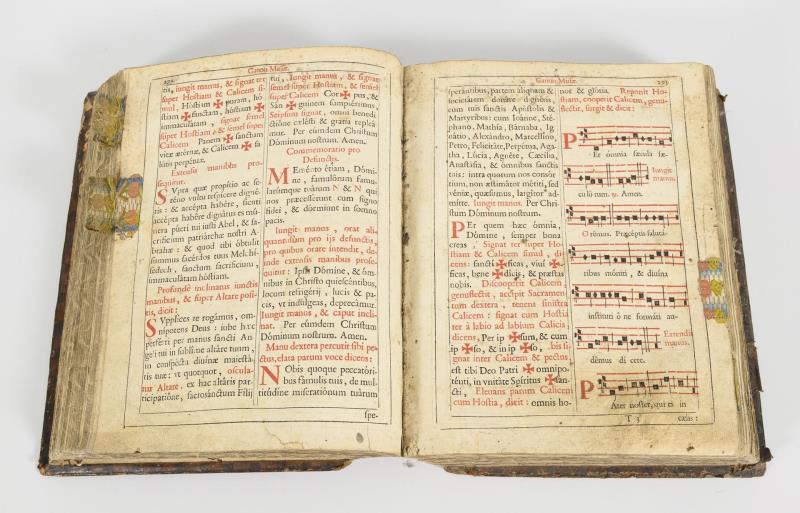 292
Canon Missæ.
tis, iungit manus, & signat ter
super Hostiam & Calicem si-
mul, Hóstiam ✠ puram, hó
stiam ✠ sanctam, hóstiam ✠
immaculátam, signat semel
super Hostiam & semel super
Calicem Panem ✠ sanctum
vitæ ætérnæ, & Calicem ✠ sa
lútis perpétuæ.
Extensis manibus pro-
sequitur.
SVpra quæ propítio ac se-
réno vultu respícere digné-
ris: & accépta habére, sicuti
accépta habére dignátus es mú
nera púeri tui iusti Abel, & sa-
crifícium patriárchæ nostri A
brahæ: & quod tibi óbtulit
summus sacérdos tuus Melchi
sédech, sanctum sacrifícium,
immaculátam hóstiam.
Profundè inclinatus iunctis
manibus, & super Altare posi-
tis, dicit:
SVpplices te rogámus, om-
nípotens Deus: iube hæc
perférri per manus sancti An
geli tui in sublíme altáre tuum,
in conspéctu divínæ maiestá-
tis tuæ: vt quotquot, oscula-
tur Altare, ex hac altáris par-
ticipatióne, sacrosánctum Fílij
tui, Iungit manus, & signat
semel super Hostiam, & semel
super Calicem Cor ✠ pus, &
Sán ✠ guinem sumpsérimus,
Seipsum signat, omni benedi
ctióne cælésti & grátia repleá
mur. Per eúmdem Christum
Dóminum nostrum. Amen.
Commemoratio pro
Defunctis.
MEménto étiam, Dómi-
ne, famulórum famu-
larúmque tuárum N & N qui
nos præcessérunt cum signo
fídei, & dórmiunt in somno
pacis.
Iungit manus, orat ali-
quantulum pro ijs defunctis,
pro quibus orare intendit, de-
inde extensis manibus prose-
quitur: Ipsis Dómine, & óm-
nibus in Christo quiescéntibus,
locum refrigérij, lucis & pa-
cis, vt indúlgeas, deprecámur.
Iungit manus, & caput incli-
nat. Per eúmdem Christum
Dóminum nostrum. Amen.
Manu dextera percutit sibi pe-
ctus, elata parum voce dicens:
NObis quoque peccatóri-
bus fámulis tuis, de mul-
titúdine miseratiónum tuárum
spe-
Canon Missæ.
293
sperántibus, partem áliquam &
societátem donáre dignéris,
cum tuis sanctis Apóstolis &
Martyribus: cum Ioánne, Sté-
phano, Mathía, Bárnaba, Ig
nátio, Alexándro, Marcellíno,
Petro, Felicitáte, Perpétua, Aga
tha, Lúcia, Agnéte, Cæcília,
Anastásia, & ómnibus sanctis
tuis: intra quorum nos consór
tium, non æstimátor mériti, sed
véniæ, quǽsumus, largítor ad-
mítte. Iungit manus. Per Chri-
stum Dóminum nostrum.
PEr quem hæc ómnia,
Dómine, semper bona
creas, Signat ter super Ho-
stiam & Calicem simul, di-
cens: sanctí ✠ ficas, viví ✠
ficas, bene ✠ dícis, & præstas
nobis. Discooperit Calicem,
genuflectit, accipit Sacramen
tum dextera, tenens sinistra
Calicem: signat cum Hostia
ter à labio ad labium Calicis
dicens, Per ip ✠ sum, & cum
ip ✠ so, & in ip ✠ so, bis si-
gnat inter Calicem & pectus,
est tibi Deo Patri ✠ omnipo-
ténti, in vnitáte Spíritus ✠ san-
cti, Eleuans parum Calicem
cum Hostia, dicit: omnis ho-
nor & glória. Reponit Ho-
stiam, cooperit Calicem, genu-
flectit, surgit & dicit:
P
Er ómnia sæcula sæ-
Iungit
manus.
culórum. ℟. Amen.
Orémus. Præcéptis salutá-
ribus móniti, & divína
institutióne formáti au-
Extendit
manus.
démus dícere.
P
Ater noster, qui es in
T 3
cælis: